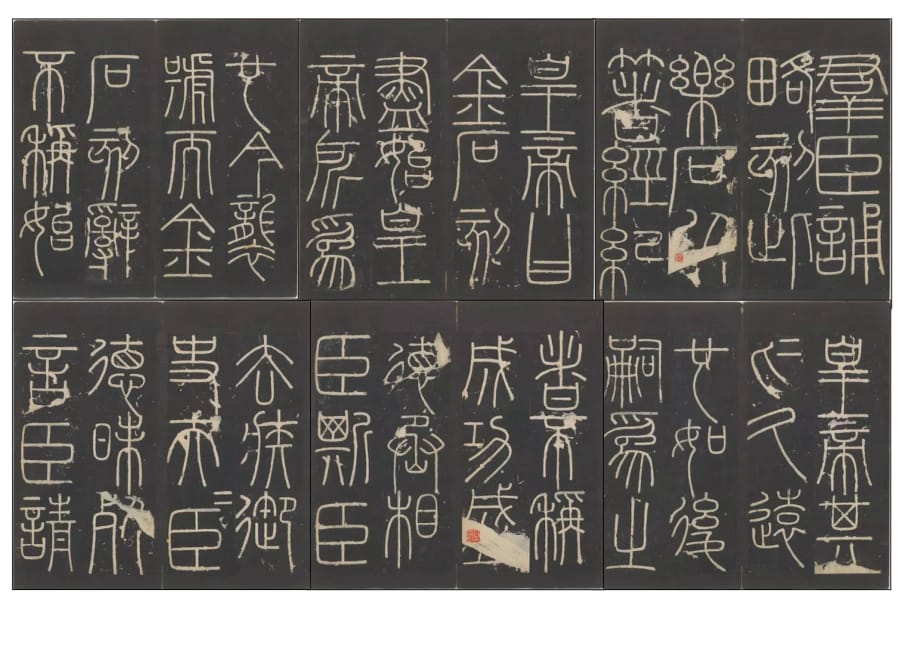 羣臣誦
略刻此
樂石以
著經紀
皇帝曰
金石刻
盡始皇
帝所為
也今襲
號而金
石刻辭
不稱始
皇帝其
於久遠
也如後
嗣為之
者不稱
成功盛
德丞相
臣斯臣
去疾御
史夫=臣
德昧死
言臣請